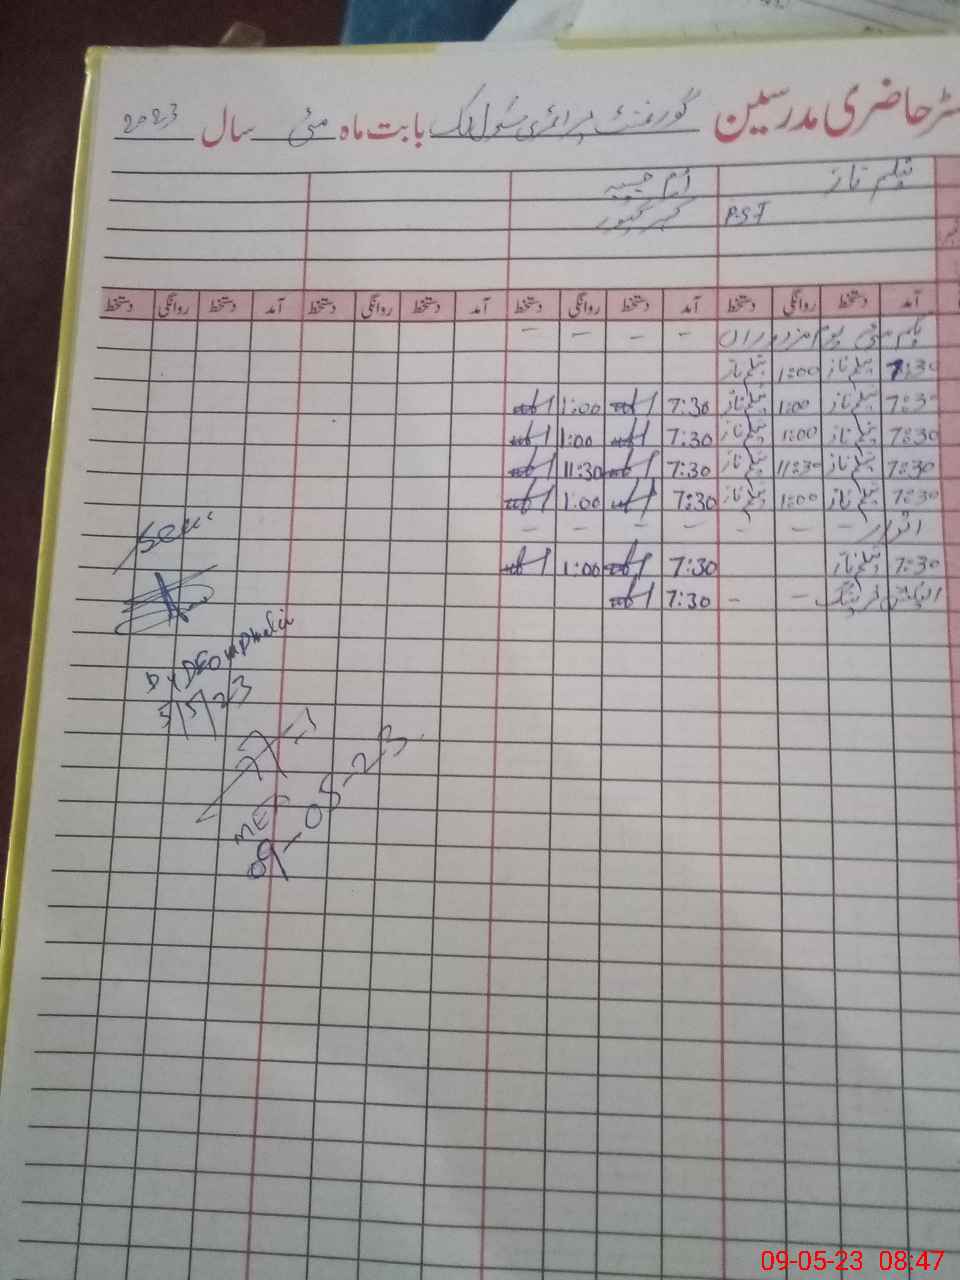 رجسٹر حاضری مدرسین گورنمنٹ پرائمری سکول بابت ماہ مئی سال 2023
نیلم ناز ام حبیبہ
P.S.T
آمد دستخط روانگی دستخط آمد دستخط روانگی دستخط آمد دستخط روانگی دستخط آمد دستخط روانگی دستخط
یکم مئی یوم مزدوراں - - - -
7:30 نیلم ناز 1:00 نیلم ناز
7:30 نیلم ناز 1:00 نیلم ناز 7:30 1:00
7:30 نیلم ناز 1:00 نیلم ناز 7:30 1:00
7:30 نیلم ناز 11:30 نیلم ناز 7:30 11:30
7:30 نیلم ناز 1:00 نیلم ناز 7:30 1:00
اتوار - - - - - - -
7:30 نیلم ناز 7:30 1:00
الیکشن ٹریننگ - - 7:30
Seen
Dy DEO
5/5/23
09-05-23
09-05-23 08:47